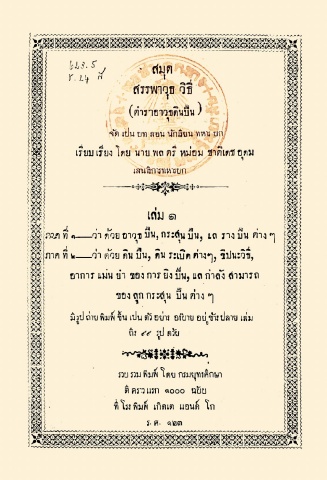 ๖๒๓.๕
สมุด
สรรพาวุธ วิธี
(ตำราอาวุธดินปืน)
จัด เปน บท สอน นักเรียน ทหาร บก
เรียบเรียง โดย นาย พล ตรี หม่อม ชาติเดช อุดม
เสนาธิการทหารบก
เล่ม ๑
ภาค ที่ ๑——ว่า ด้วย อาวุธ ปืน, กระสุน ปืน, แล ราง ปืน ต่าง ๆ
ภาค ที่ ๒——ว่า ด้วย ดิน ปืน, ดิน ระเบิด ต่างๆ, ขีปนะวิธี,
อาการ แม่น ยำ ของ การ ยิง ปืน, แล กำลัง สามารถ
ของ ลูก กระสุน ปืน ต่าง ๆ
มี รูป ถ่าย พิมพ์ ขึ้น เปน ตัว อย่าง อธิบาย อยู่ ข้าง ปลาย เล่ม
ถึง ๙๙ รูป ด้วย
รวบ รวม พิมพ์ โดย กรมยุทธศึกษา
ตี คราว แรก ๑๐๐๐ ฉบับ
ที่ โรง พิมพ์ เกิดเด แอนด์ โก
ร. ศ. ๑๒๓